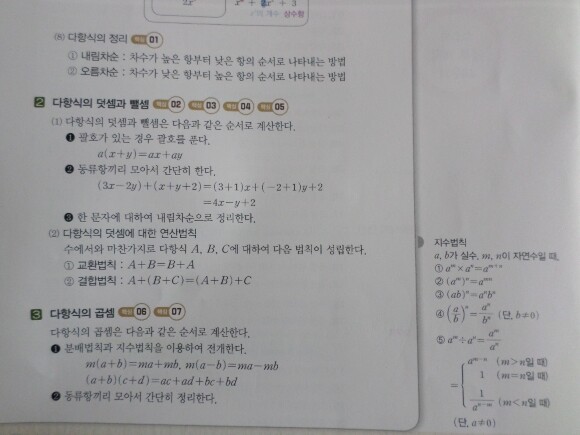 2x³
x⁴ + 2x² + 3
x²의 계수 상수항
(8) 다항식의 정리 핵심 01
① 내림차순 : 차수가 높은 항부터 낮은 항의 순서로 나타내는 방법
② 오름차순 : 차수가 낮은 항부터 높은 항의 순서로 나타내는 방법
2 다항식의 덧셈과 뺄셈 핵심 02 핵심 03 핵심 04 핵심 05
(1) 다항식의 덧셈과 뺄셈은 다음과 같은 순서로 계산한다.
❶ 괄호가 있는 경우 괄호를 푼다.
a(x+y)=ax+ay
❷ 동류항끼리 모아서 간단히 한다.
(3x-2y)+(x+y+2)=(3+1)x+(-2+1)y+2
=4x-y+2
❸ 한 문자에 대하여 내림차순으로 정리한다.
(2) 다항식의 덧셈에 대한 연산법칙
수에서와 마찬가지로 다항식 A, B, C에 대하여 다음 법칙이 성립한다.
① 교환법칙 : A+B=B+A
② 결합법칙 : A+(B+C)=(A+B)+C
3 다항식의 곱셈 핵심 06 핵심 07
다항식의 곱셈은 다음과 같은 순서로 계산한다.
❶ 분배법칙과 지수법칙을 이용하여 전개한다.
m(a+b)=ma+mb, m(a-b)=ma-mb
(a+b)(c+d)=ac+ad+bc+bd
❷ 동류항끼리 모아서 간단히 정리한다.
지수법칙
a, b가 실수, m, n이 자연수일 때,
① aᵐ×aⁿ=aᵐ⁺ⁿ
② (aᵐ)ⁿ=aᵐⁿ
③ (ab)ⁿ=aⁿbⁿ
④ (a/b)ⁿ=aⁿ/bⁿ (단, b≠0)
⑤ aᵐ÷aⁿ=aᵐ/aⁿ
= { aᵐ⁻ⁿ (m>n일 때)
1 (m=n일 때)
1/aⁿ⁻ᵐ (m<n일 때)
(단, a≠0)